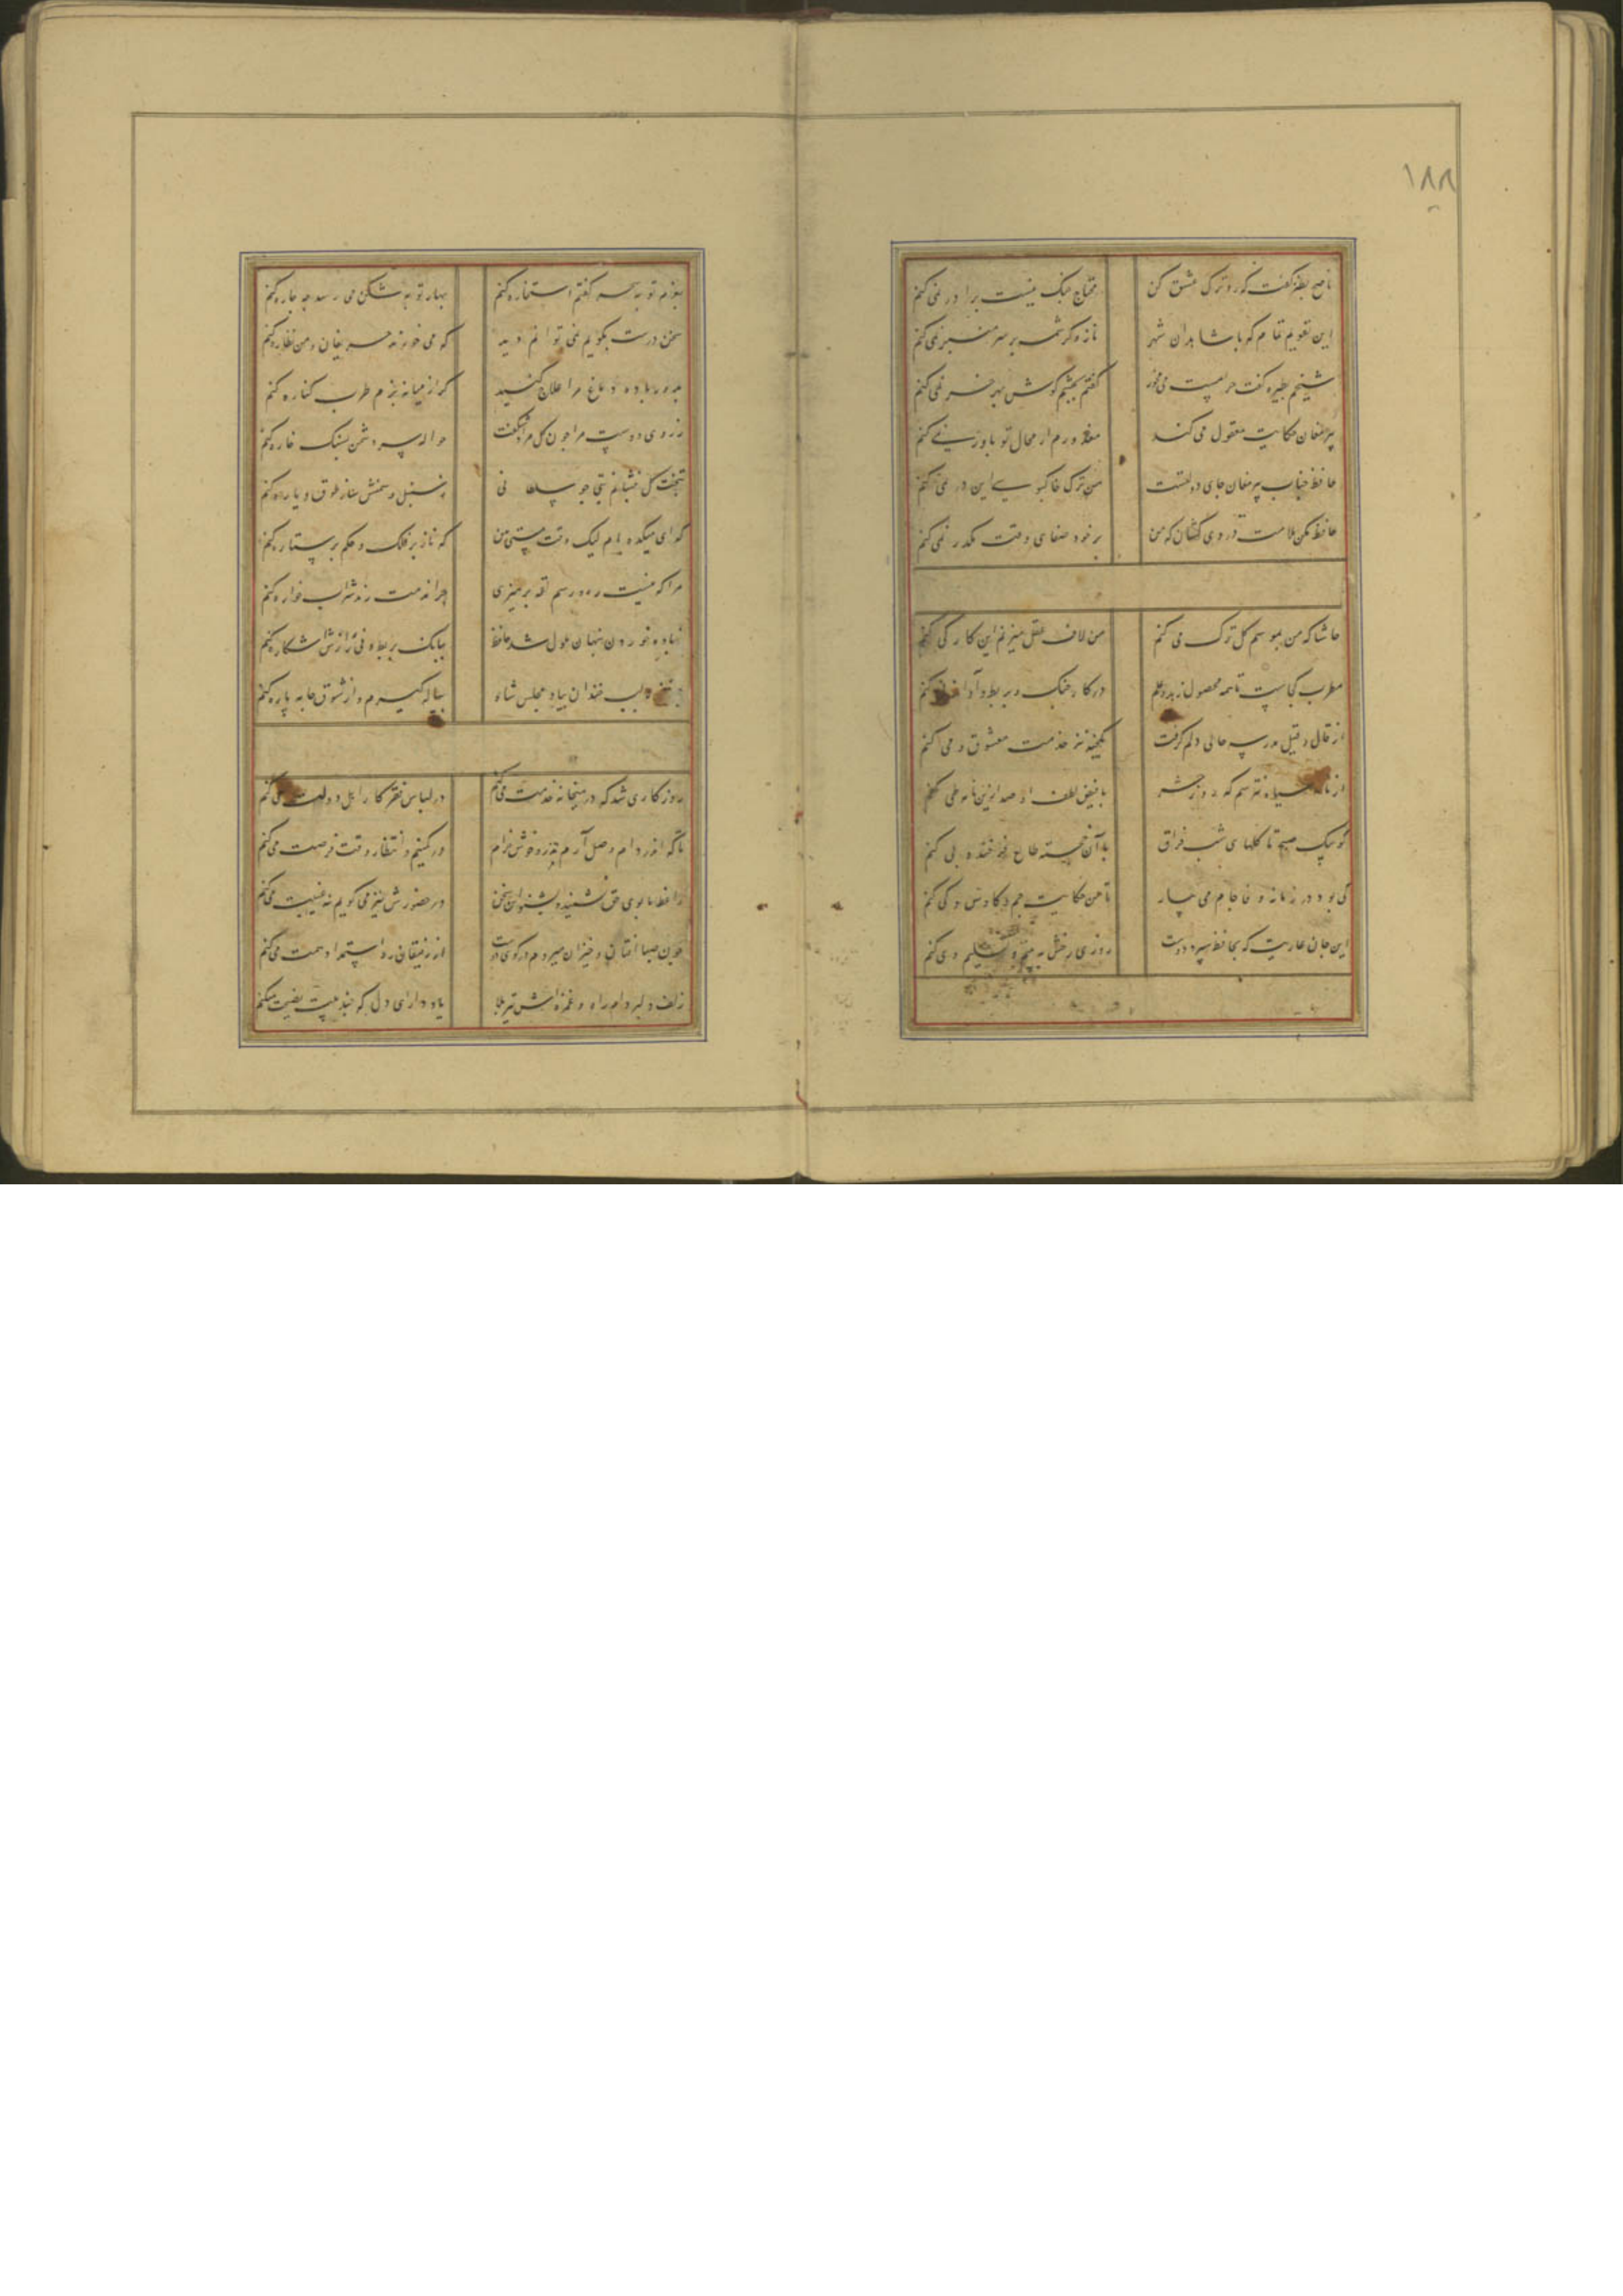 ١٨٨
ناصح بطنز گفت که رو ترک عشق کن
محتاج جنک نیست برادر نمی کنم
این تقویم تمام که با شاهدان شهر
ناز و کرشمه بر سر منبر نمی کنم
شیخم بطیره گفت حرامست می مخور
گفتم بچشم گوش بهر خر نمی کنم
پیر مغان حکایت معقول می کند
معذورم از محال تو باور نمی کنم
حافظ جناب پیر مغان جای دولتست
من ترک خاکبوسی این در نمی کنم
حافظ مکن ملامت دردی کشان که من
بر خود صفای وقت مکدر نمی کنم
حاشا که من بموسم کل ترک می کنم
من لاف عقل میزنم این کار کی کنم
مطرب کجاست تا همه محصول زهد و علم
در کار چنک و بربط و آواز نی کنم
از قال و قیل مدرسه حالی دلم گرفت
یکچند نیز خدمت معشوق و می کنم
از نامه سیاه نترسم که روز حشر
با فیض لطف او صد ازین نامه طی کنم
کو پیک صبح تا کلهای شب فراق
با آن خجسته طالع فرخنده پی کنم
کی بود در زمانه وفا جام می بیار
تا من حکایت جم و کاوس و کی کنم
این جان عاریت که بحافظ سپرد دوست
روزی رخش ببینم و تسلیم وی کنم
بعزم توبه سحر گفتم استخاره کنم
بهار توبه شکن می رسد چه چاره کنم
سخن درست بگویم نمی توانم دید
که می خورند حریفان و من نظاره کنم
بدور باده دماغ مرا علاج کنید
گر از میانه بزم طرب کناره کنم
ز روی دوست مرا چون کل مراد شکفت
حواله سر دشمن بسنک خاره کنم
بتخت کل بنشانم بتی چو سلطانی
ز سنبل و سمنش ساز طوق و یاره کنم
گدای میکده ام لیک وقت مستی من
که ناز بر فلک و حکم بر ستاره کنم
مرا که نیست ره و رسم لقمه پرهیزی
چرا مذمت رند شرابخواره کنم
ز باده خوردن پنهان ملول شد حافظ
ببانک بربط و نی رازش آشکاره کنم
لب خندان بیاد مجلس شاه
پیاله گیرم و از شوق جامه پاره کنم
روزکاری شد که در میخانه خدمت می کنم
در لباس فقر کار اهل دولت می کنم
تا که اندر دام وصل آرم تذروی خوش خرام
در کمینم و انتظار وقت فرصت می کنم
واعظ ما بوی حق نشنید بشنو این سخن
در حضورش نیز می گویم نه غیبت می کنم
چون صبا افتان و خیزان میروم در کوی دوست
از رفیقان ره استمداد همت می کنم
زلف دلبر دام راه و غمزه اش تیر بلا
یاد دار ای دل که چندینت نصیحت میکنم